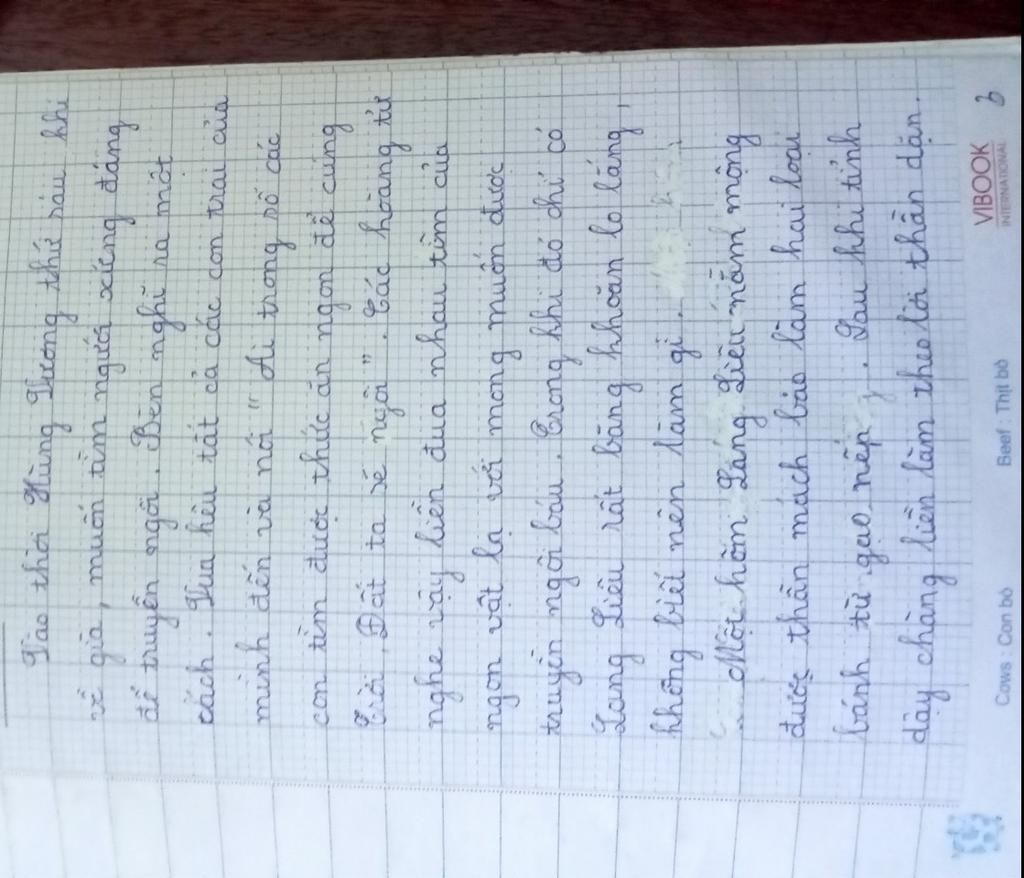 Vào thời Hùng Vương thứ sáu khi
về già, muốn tìm người xứng đáng
để truyền ngôi. Bèn nghĩ ra một
cách. Vua kêu tất cả các con trai của
mình đến và nói " Ai trong số các
con tìm được thức ăn ngon để cúng
Trời, Đất ta sẽ ngôi". Các hoàng tử
nghe vậy liền đua nhau tìm của
ngon vật lạ với mong muốn được
truyền ngôi báu. Trong khi đó chỉ có
Lang Liêu rất băng khoăn lo lắng,
không biết nên làm gì.
Một hôm Lang Liêu nằm mộng
được thần mách bảo làm hai loại
bánh từ gạo nếp. Sau khi tỉnh
dậy chàng liền làm theo lời thần dặn.
Cows : Con bò
Beef : Thịt bò
VIBOOK
INTERNATIONAL